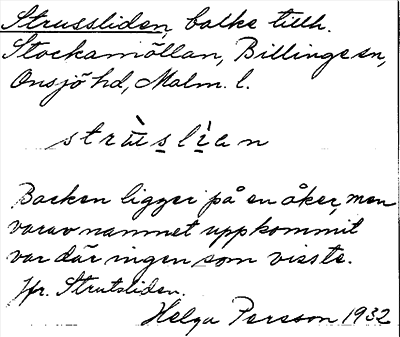 Strussliden, balke tillh.
Stockamöllan, Billinge sn,
Onsjö hd, Malm. l.
strùslìan
Backen ligger på en åker, men
varav namnet uppkommit
var där ingen som visste.
Jfr. Strutsliden.
Helga Persson 1932